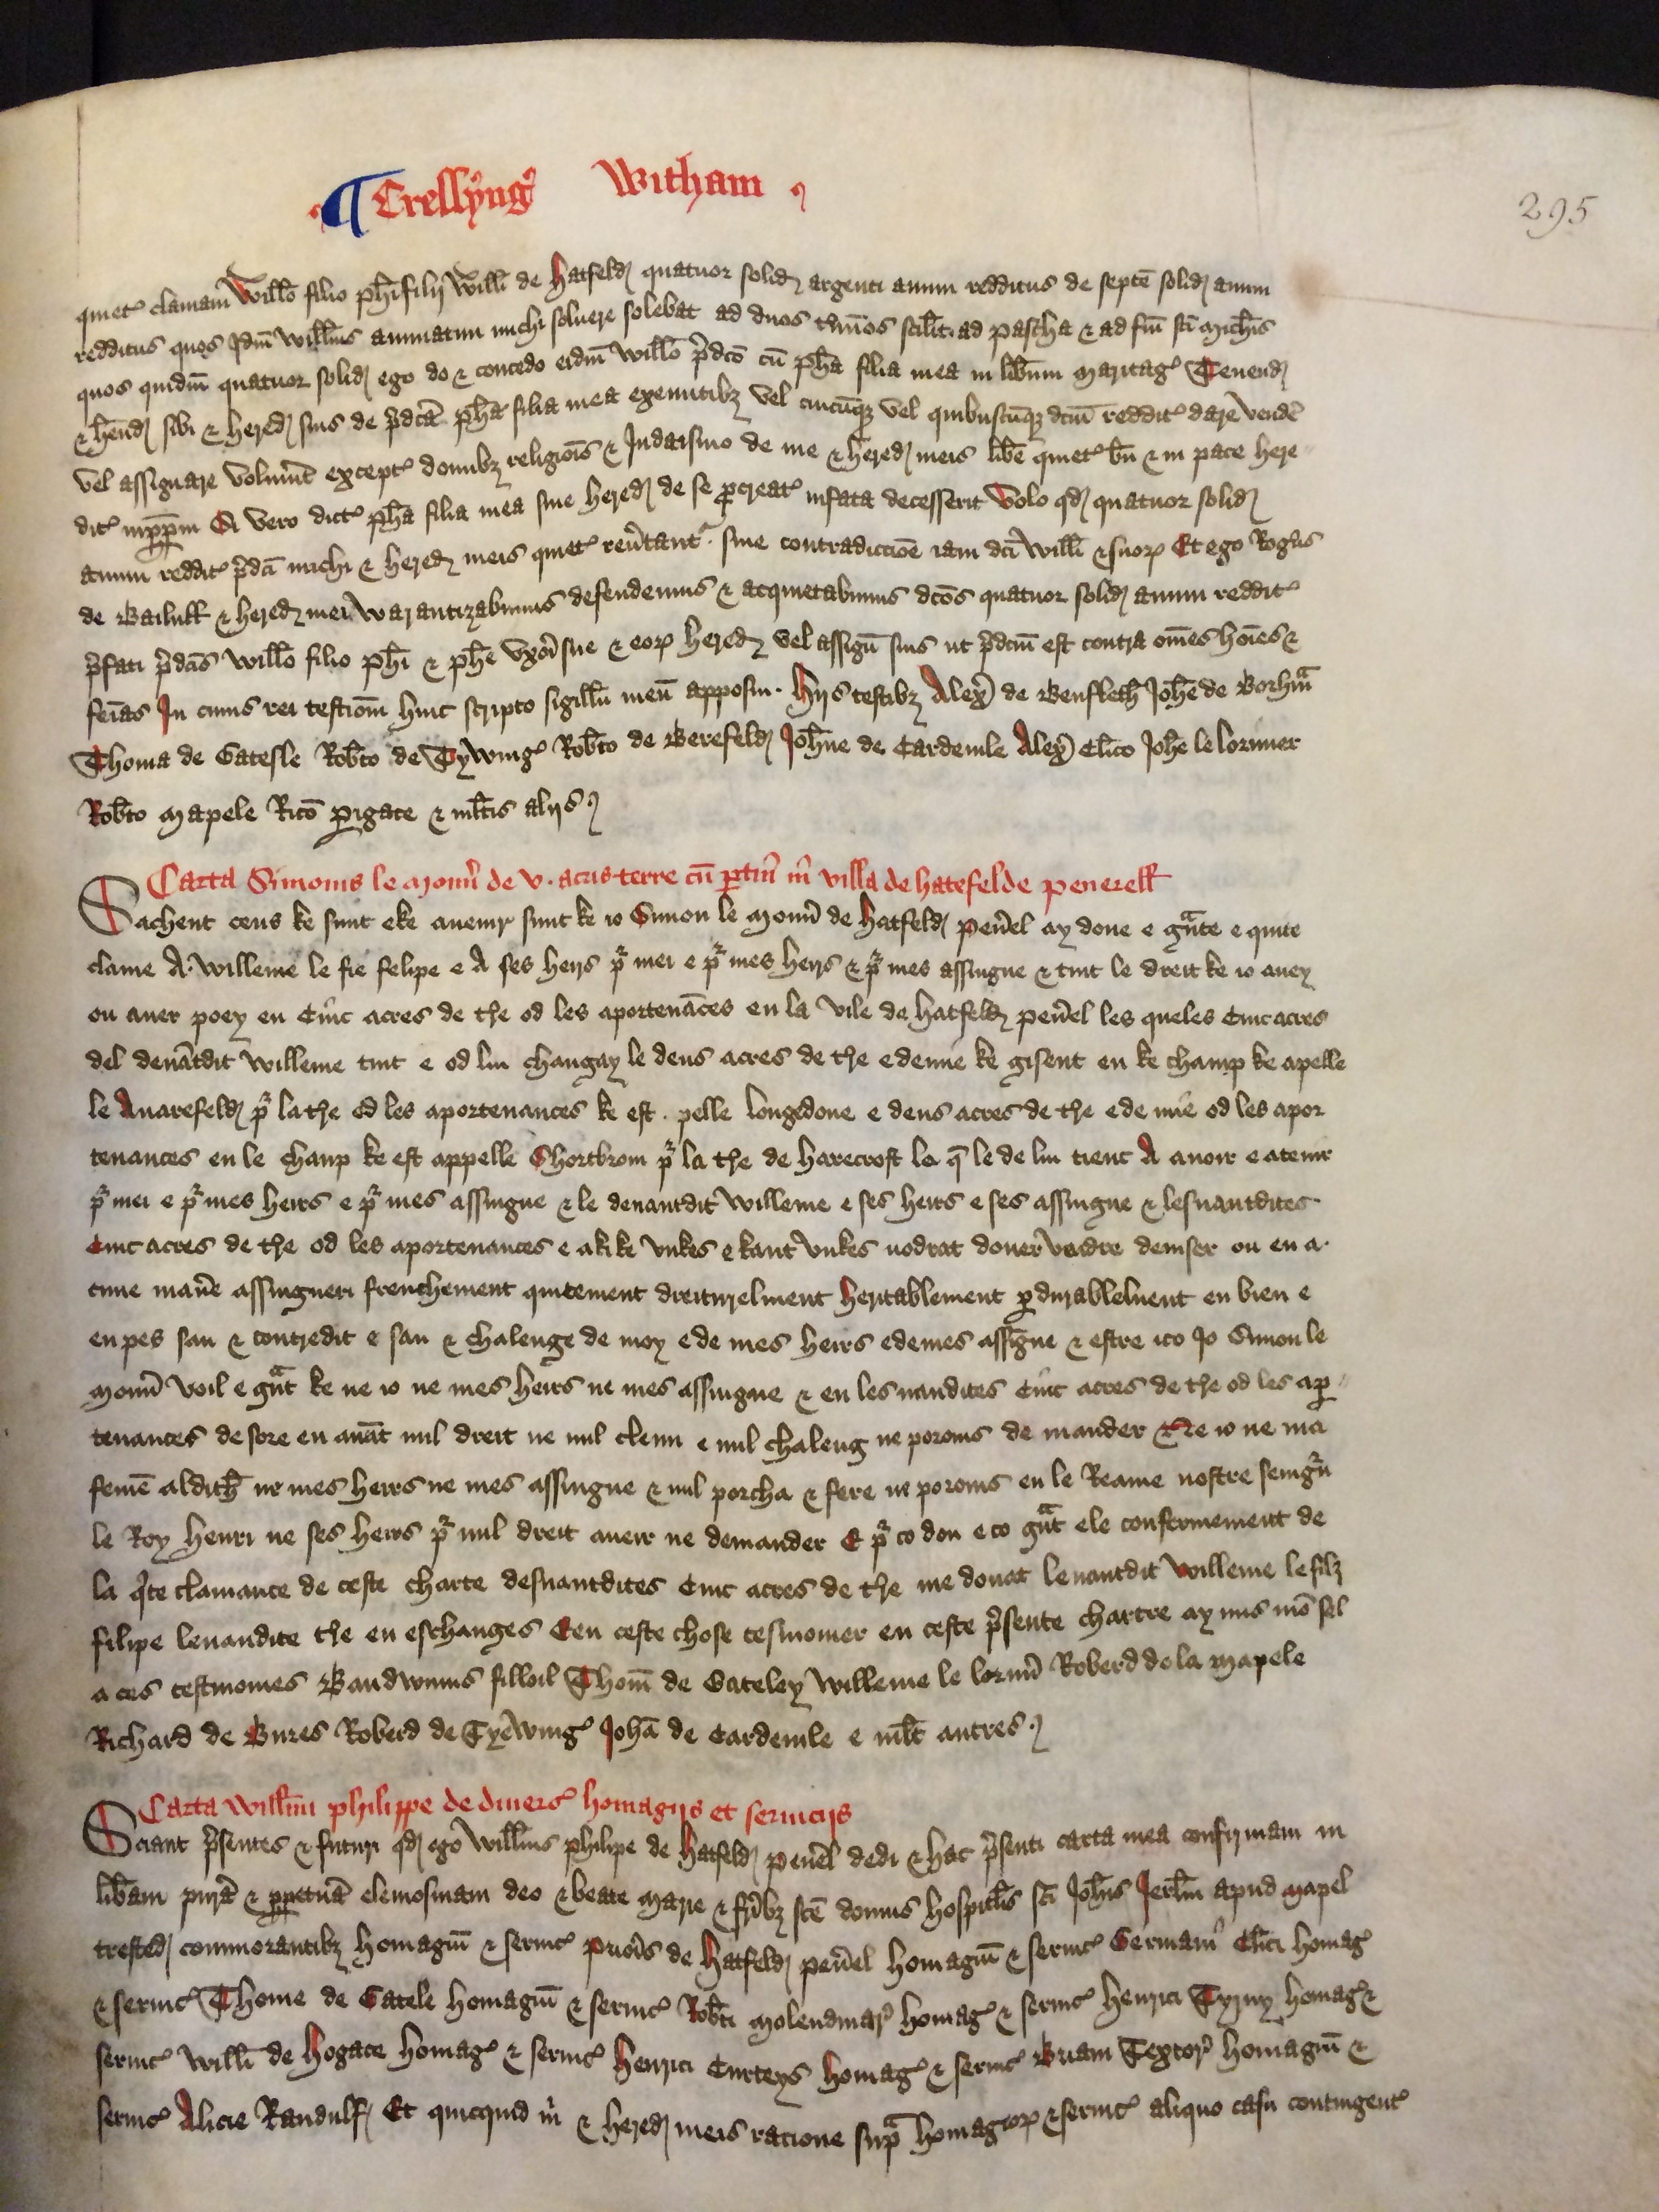 ¶ Crellyng' Witham
295
quiet' clamaui Willo filio phi filij Willi de Hatfeld quatuor solid argenti annui redditus de septē solid annui
redditus quos Idm Willms annuatim michi soluere solebat ad duos tmnos scilit ad pascha & ad fm sti Michis
quos quidm quatuor solid ego do & concedo eidm Willo pdco cū pha filia mea in libum maritag' Tenend
& hend sibi & hered suis de pdcā pha filia mea exeuntibz vel cuicūqz vel quibuscūqz dcm reddit' dare vendē
vel assignare voluint except' domibz religiois & Iudaismo de me & hered meis libe quiet' bn & in pace here
dit' inppm Si vero dict' pha filia mea sine hered de se pcreat' infata decesserit volo qd quatuor solid
annui reddit' pdci michi & hered meis quiet' reutant' sine contradiccioe iam dci Willi & suor Et ego Rogus
de Bailull & hered mei Warantizabimus defendemus & acquietabimus dcos quatuor solid annui reddit'
pfati pdcis Willo filio phi & phe vxori sue & eor hered vel assign suis ut pdcm est contra omes hoies &
feias In cuius rei testiom huic scripto sigillū meū apposui. Hijs testibz Alexo de Benfleth Johe de Borhma
Thoma de Gatesle Robto de Tywing' Robto de Berefeld Johne de Cardeuile Alexo Clico Johe le lorimer
Robto Mapele Rico Pigace & mltis alijs
Carta Simonis le Moun de v. acris terre cū ptin in villa de hatefelde peuerell
Sachent ceus ke sunt e ke auenir sunt ke io Simon le Moun de Hatfeld peuel ay done e gnte e quite
clame A. Willeme le fiz felipe e A ses heirs pr mei e pr mes heirs & pr mes assingne & tut le dreit ke io auey
ou auer poey en Cinc acres de the od les aportenāces en la vile de hatfeld peuel les queles Cinc acres
del deuātdit Willeme tint e od lui changay le deus acres de the e demie ke gisent en ke champ ke apelle
le Anarefeld pr la the od les aportenances ke est . pelle longedone e deus acres de the e de mie od les apor
tenances en le chanp ke est appelle Shortbrom pr la the de harecroft la q le de lui tient A auoir e a tenir
pr mei e pr mes heirs e pr mes assingne & le deuantdit Willeme e ses heirs e ses assingne & lesuantdites
Cinc acres de the od les aportenances e a ki ke vnkes e kant vnkes uodrat doner vendre deuiser ou en a.
cune manē assingneri frenchement quitement dreiturelment heritablement pdurablelment en bien e
en pes san & contredit e san & chalenge de moy e de mes heirs e de mes assigne & estre ico Jo Simon le
Moun voil e gnt ke ne io ne mes heirs ne mes assingne & en les uandites Cinc acres de the od les ap
tenances desore en auāt nul dreit ne nul cleim e nul chaleng ne poroms de mander & Ne io ne ma
femē aldith ne mes heirs ne mes assingne & nul porcha & fere ne poroms en le Reame nostre seingn
le Roy Henri ne ses heirs pr nul dreit aueir ne demander E pr co don e co gnt e le confermement de
la qite clamance de ceste charte desuantdites Cinc acres de the me donat leuantdit Willeme le filz
filipe leuandite the en eschanges E en ceste chose tesmonier en ceste psente chartre ay mis mō sel
a ces testmoines Baudwinus filloil Thom de Gateley Willeme le lorim Roberd de la Mapele
Richard de Bures Roberd de Tyewing' Johā de Cardeuile e mlt autres
Carta Willmi philippe de diuers' homagijs et seruicijs
Sciant psentes & futuri qd ego Willms philipe de Hatfeld peuel dedi & hac psenti carta mea confirmaui in
libam purā & ppetuā elemosinam deo & beate Marie & fribz sce domus hospitlis sci Johis Jerlm apud Mapel
trested commorantibz homagiū & seruic' prioris de Hatfeld peuel homagiū & seruic' Germani Clici homag'
& seruic' Thome de Gatele homagiū & seruic' Robti Molendinar' homag' & seruic' henrici Tyrry homag' &
seruic' Willi de Hogace homag' & seruic' Henrici Curteys homag' & seruic' Briani Textor' homagiū &
seruic' Alicie Randulf Et quicquid m & hered meis racione supa homagior & seruic' aliquo casu contingent'